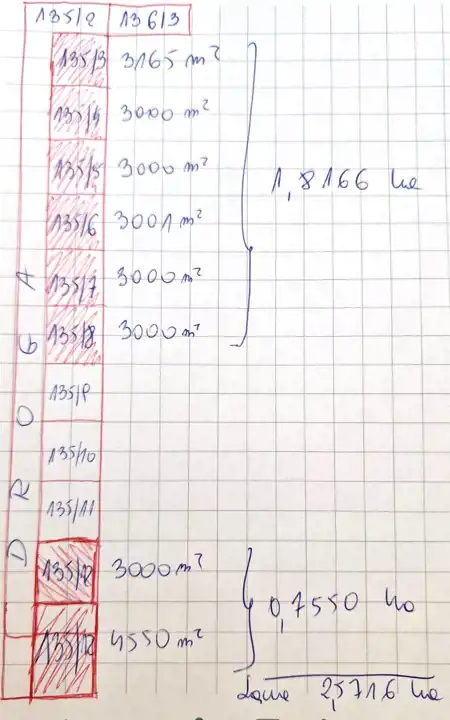 135/2 136/3
135/3 3165 m²
135/4 3000 m²
135/5 3000 m²
135/6 3001 m²
135/7 3000 m²
135/8 3000 m²
1,8166 ha
135/9
135/10
135/11
135/12 3000 m²
135/13 4550 m²
0,7550 ha
DROGA
2,5716 ha